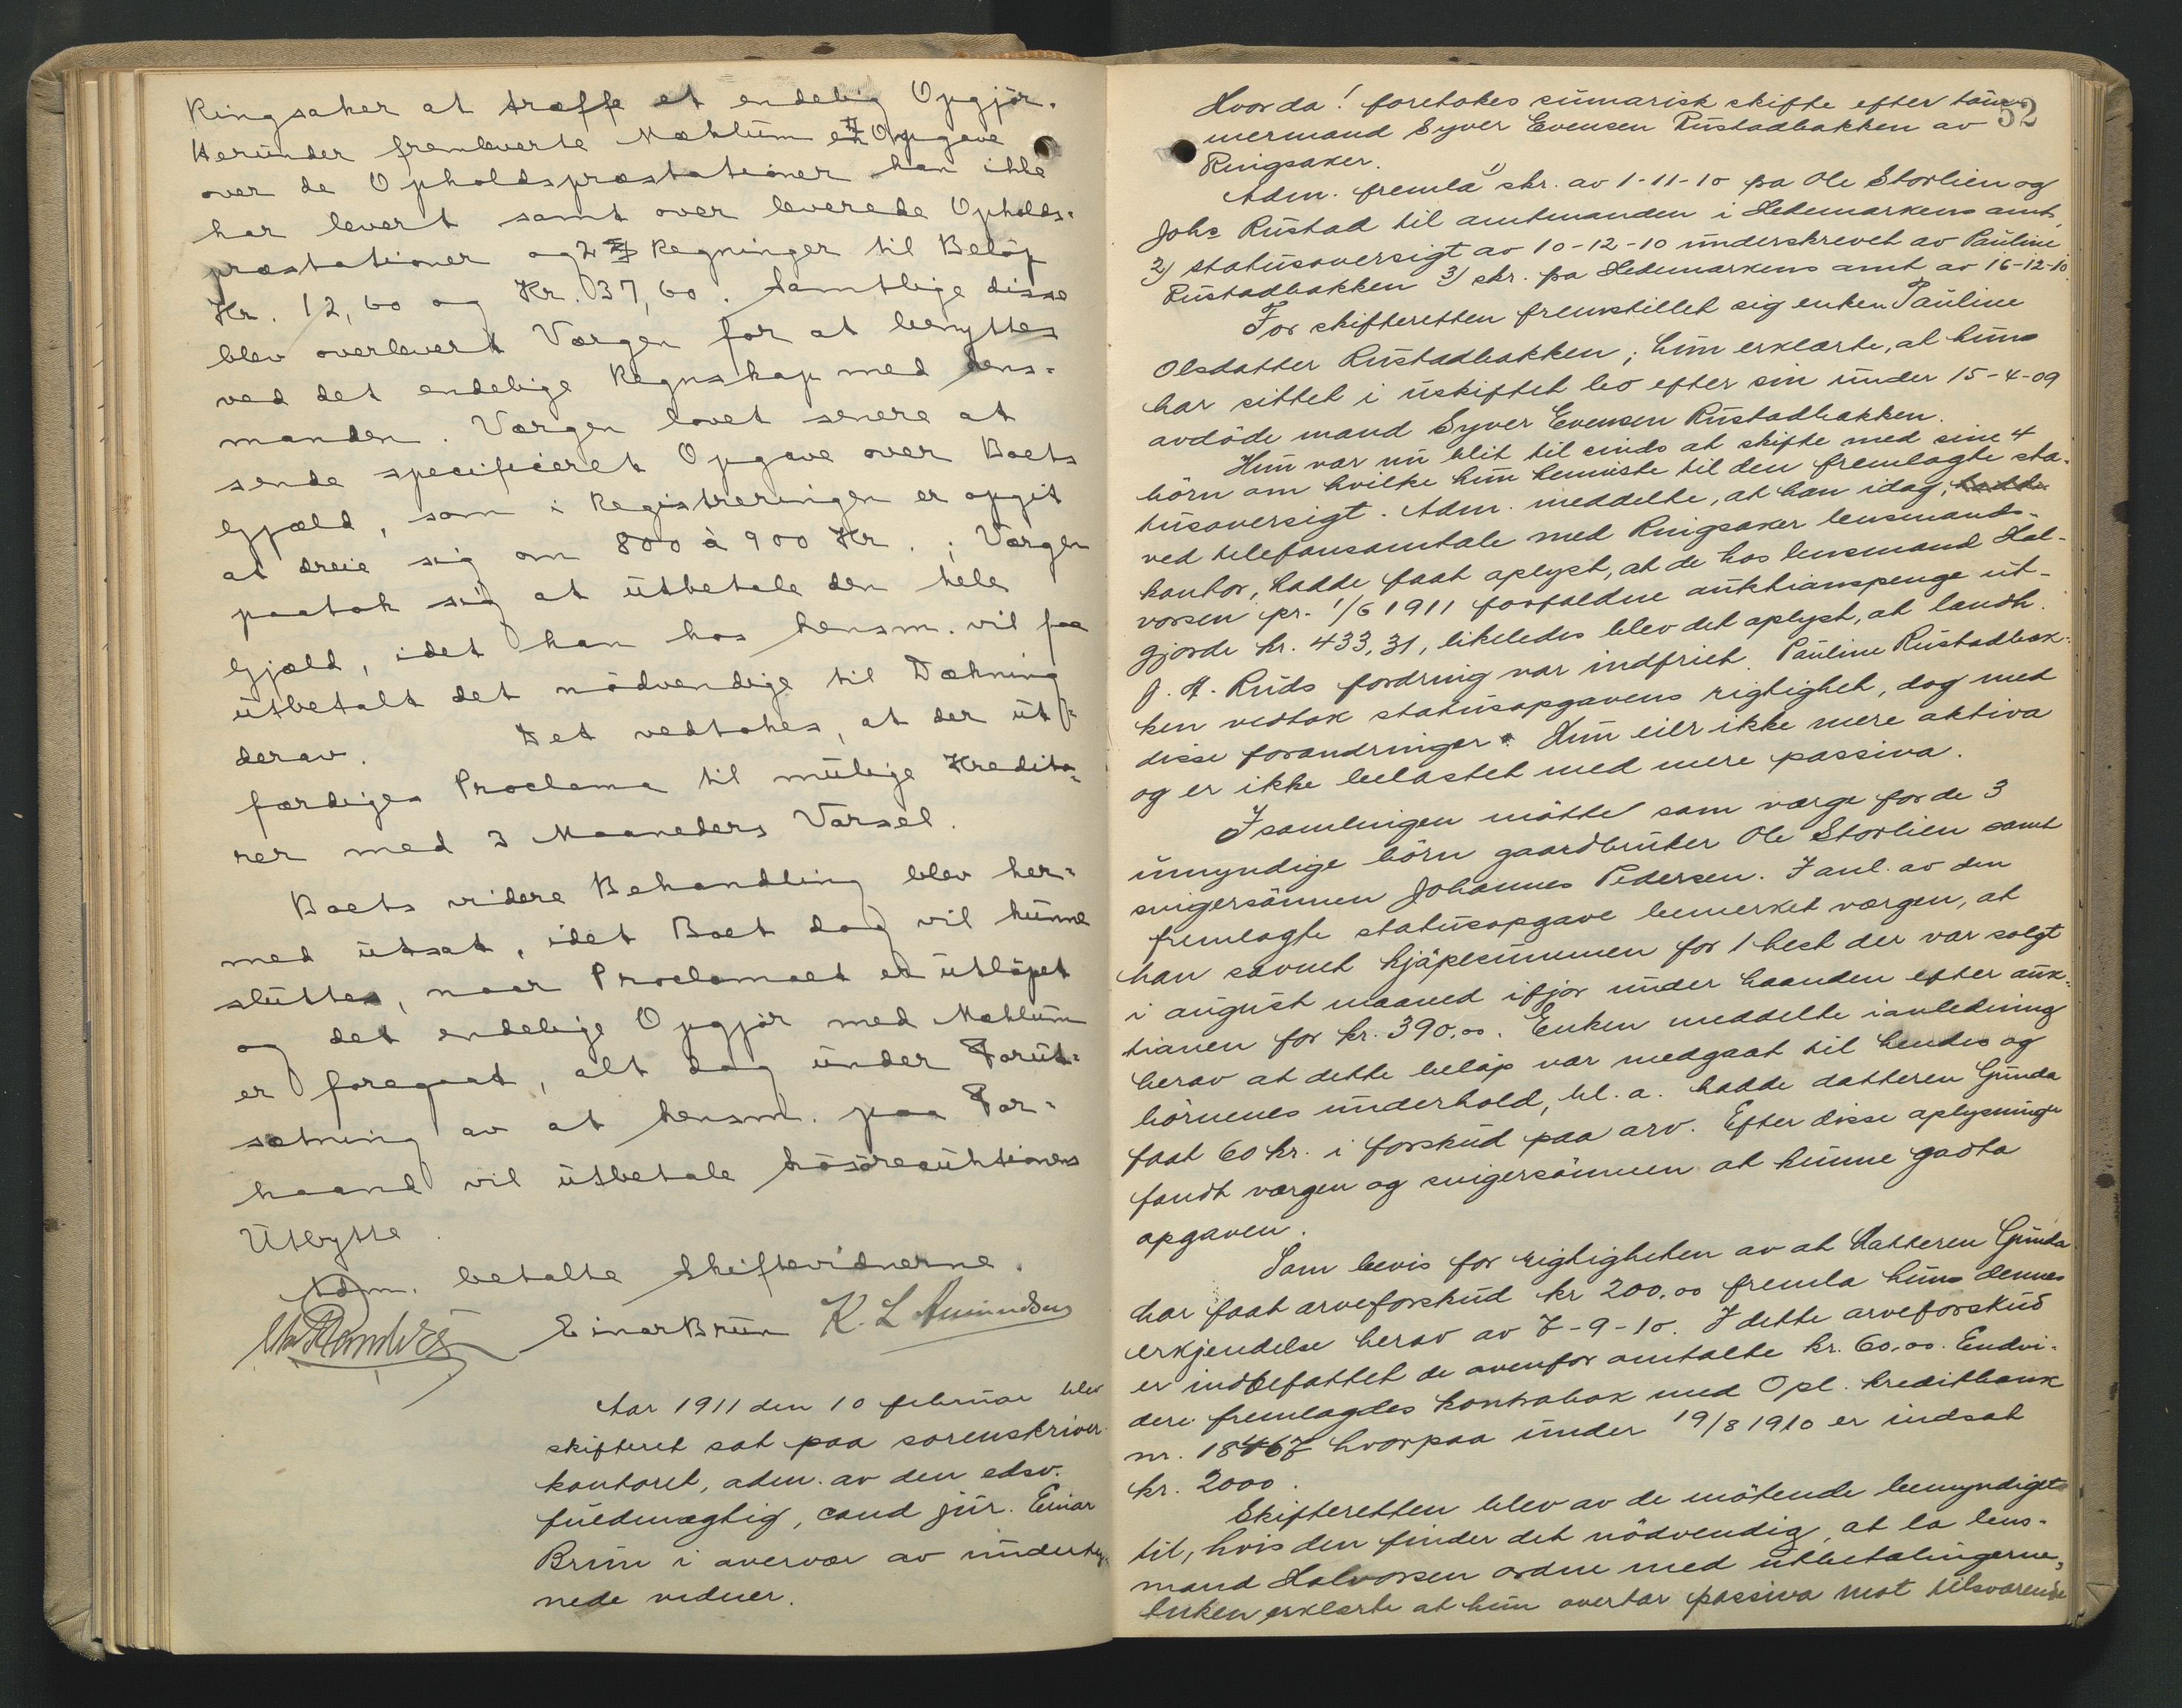 Ringsaker at træffe et endelig Opgjör.
Herunder fremleverte Mæhlum en Opgave
over de Opholdspræstationer han ikke
har levert samt over leverede Opholds-
præstationer og 2 Regninger til Belöp
Kr. 12,60 og Kr. 37,60. Samtlige disse
blev overlevert Værgen for at benyttes
ved det endelige Regnskap med Lens-
manden. Værgen lovet senere at
sende specificeret Opgave over Boets
Gjæld, som i Registreringen er opgit
at dreie sig om 800 à 900 Kr. ; Værgen
paatok sig at utbetale den hele
Gjæld, idet han hos Lensm. vil faa
utbetalt det nödvendige til Dækning
derav. Det vedtokes, at der ut-
færdiges Proclama til mulige Kredito-
rer med 3 Maaneders Varsel.
Boets videre Behandling blev her-
med utsat, idet Boet dog vil kunne
sluttes, naar Proclamaet er utlöpet
og det endelige Opgjör med Mæhlum
er foregaat, alt dog under Forut-
sætning av at Lensm. paa For-
haand vil utbetale Lösöreauktionens
Utbytte.
Adm. betalte Skiftevidnerne.
Einar Brun K. L. Amundsen
Aar 1911 den 10 februar blev
skifteret sat paa sorenskriver-
kontoret, adm. av den edsv.
fuldmægtig, cand jur. Einar
Brun i overvær av underteg-
nede vidner.
52
Hvorda! foretokes sumarisk skifte efter töm-
mermand Syver Evensen Rustadbakken av
Ringsaker.
Adm. fremla 1) skr. av 1-11-10 fra Ole Storlien og
Johs Rustad til amtmanden i Hedemarkens amt,
2) statusoversigt av 10-12-10 underskrevet av Pauline
Rustadbakken 3) skr. fra Hedemarkens amt av 16-12-10.
For skifteretten fremstillet sig enken Pauline
Olsdatter Rustadbakken; hun erklærte, at hun
har sittet i uskiftet bo efter sin under 15-4-09
avdöde mand Syver Evensen Rustadbakken.
Hun var nu blit til sinds at skifte med sine 4
börn om hvilke hun henviste til den fremlagte sta-
tusoversigt. Adm. meddelte, at han idag, hadde
ved telefonsamtale med Ringsaker lensmands-
kontor, hadde faat oplyst, at de hos lensmand Hal-
vorsen pr. 1/6 1911 forfaldne auktionspenge ut-
gjorde kr. 433,31, likeledes blev det oplyst, at landh.
J. A. Ruds fordring var indfriet. Pauline Rustadbak-
ken vedtok statusopgavens rigtighet, dog med
disse forandringer. Hun eier ikke mere aktiva
og er ikke belastet med mere passiva.
I samlingen mötte som værge for de 3
umyndige börn gaardbruker Ole Storlien samt
svigersönnen Johannes Pedersen. I anl. av den
fremlagte statusopgave bemerket værgen, at
han savnet kjöpesummen for 1 hest der var solgt
i august maaned ifjor under haanden efter auk-
tionen for kr. 390.00. Enken meddelte i anledning
herav at dette belöp var medgaat til hendes og
börnenes underhold, bl. a. hadde datteren Gunda
faat 60 kr. i forskud paa arv. Efter disse oplysninger
fandt værgen og svigersönnen at kunne godta
opgaven.
Som bevis for rigtigheten av at datteren Gunda
har faat arveforskud kr 200.00 fremla hun dennes
erkjendelse herav av 7-9-10. I dette arveforskud
er indbefattet de ovenfor omtalte kr. 60.00. Endvi-
dere fremlagdes kontrabok med Opl. kreditbank
nr. 18467 hvorpaa under 19/8 1910 er indsat
kr. 2000.
Skifteretten blev av de mötende bemyndiget
til, hvis den finder det nödvendig, at la lens-
mand Halvorsen ordne med utbetalingerne,
Enken erklærte at hun overtar passiva mot tilsvarende